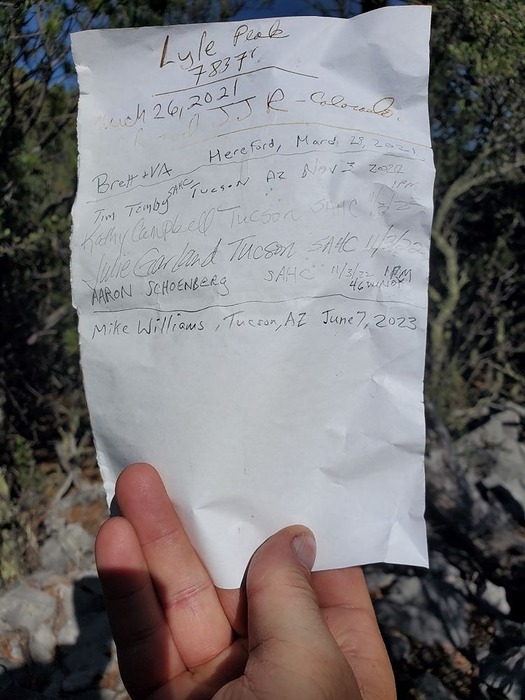 Lyle Peak
7837'
March 26, 2021
J J R - Colorado.
Brett + VA Hereford, March 28, 2021
Tim Tomby SAHC Tucson AZ Nov 3 2022
1PM
Kathy Campbell Tucson SAHC 11/3/22
Julie Garland Tucson SAHC 11/3/22
AARON SCHOENBERG SAHC 11/3/22 1PM
46 WINDY
Mike Williams, Tucson, AZ June 7, 2023